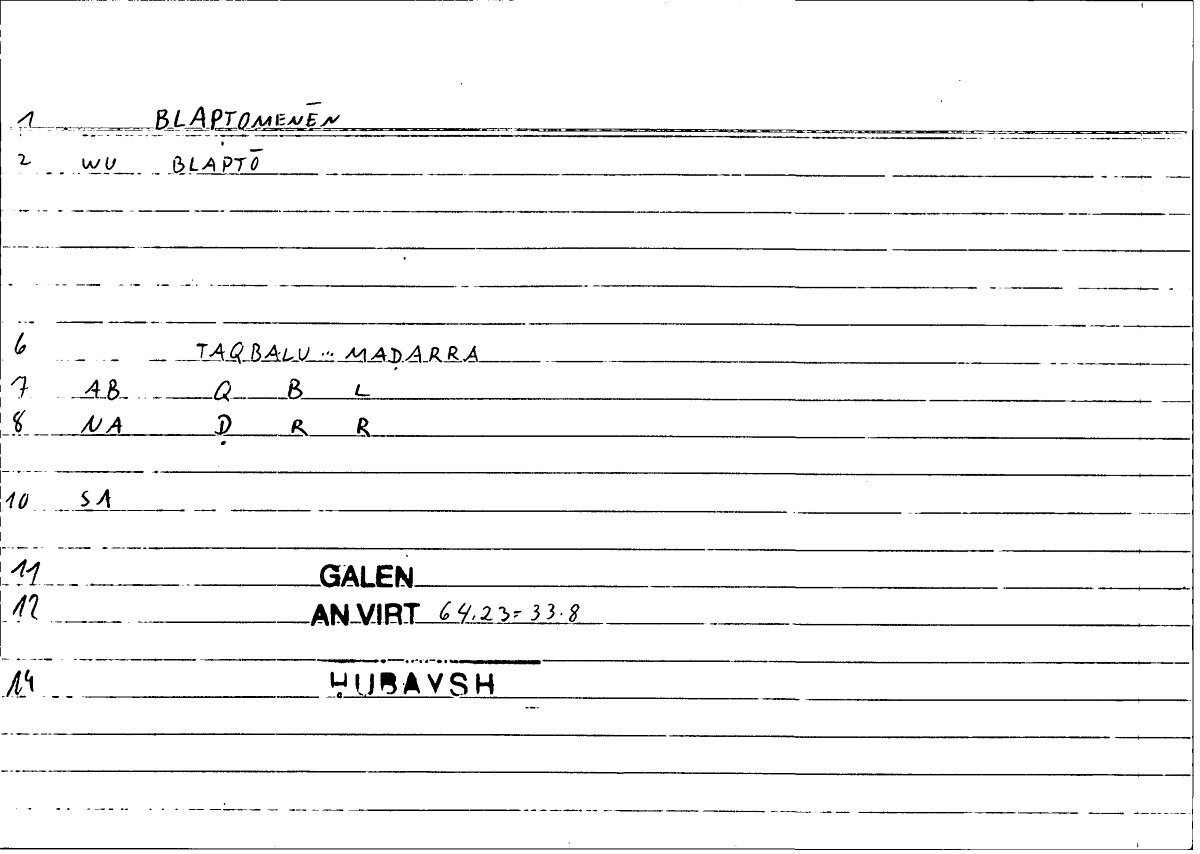 1 BLAPTOMENĒN
2 WU BLAPTŌ
6 TAQBALU ... MAḌARRA
7 AB Q B L
8 NA Ḍ R R
10 SA
11 GALEN
12 AN VIRT 64.23=33.8
14 ḤUBAYSH